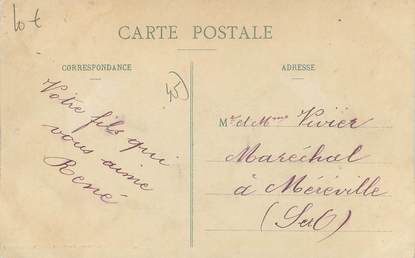 lot
CARTE POSTALE
CORRESPONDANCE
ADRESSE
45
Votre fils qui
vous aime
René
Mr et Mme Vivier
Maréchal
à Méréville
(S et O)